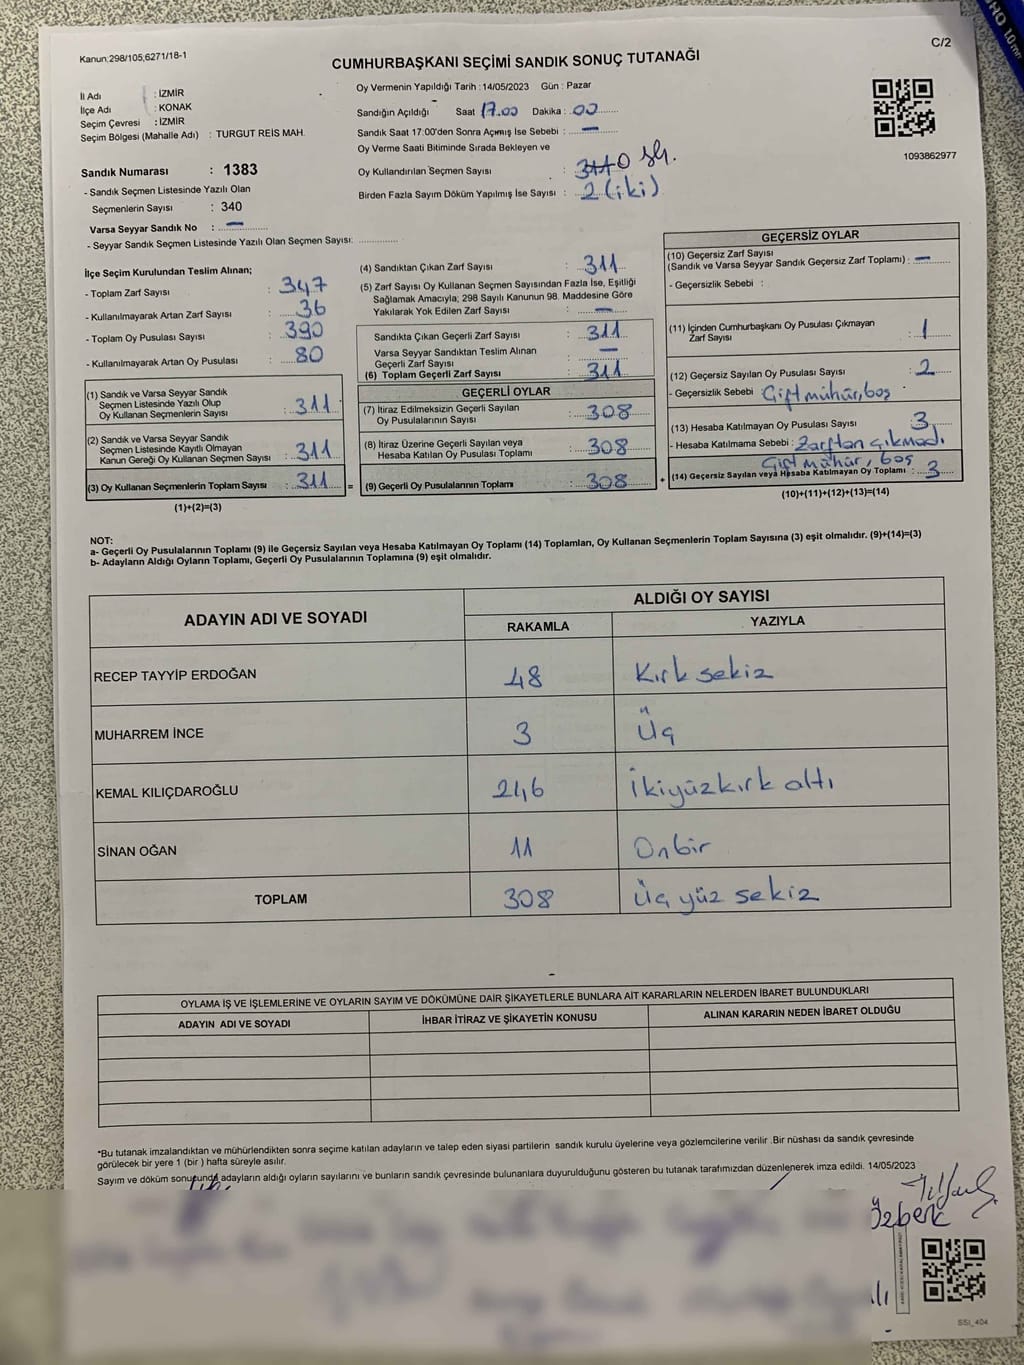 Kanun:298/105,6271/18-1
C/2
CUMHURBAŞKANI SEÇİMİ SANDIK SONUÇ TUTANAĞI
İl Adı : İZMİR
İlçe Adı : KONAK
Seçim Çevresi : İZMİR
Seçim Bölgesi (Mahalle Adı) : TURGUT REİS MAH.
Oy Vermenin Yapıldığı Tarih : 14/05/2023 Gün : Pazar
Sandığın Açıldığı Saat 17.00 Dakika : 00
Sandık Saat 17:00'den Sonra Açmış İse Sebebi : —
Oy Verme Saati Bitiminde Sırada Bekleyen ve
Oy Kullandırılan Seçmen Sayısı :
Birden Fazla Sayım Döküm Yapılmış İse Sayısı : 2 (iki)
1093862977
Sandık Numarası : 1383
- Sandık Seçmen Listesinde Yazılı Olan
Seçmenlerin Sayısı : 340
Varsa Seyyar Sandık No : —
- Seyyar Sandık Seçmen Listesinde Yazılı Olan Seçmen Sayısı: ............
İlçe Seçim Kurulundan Teslim Alınan;
- Toplam Zarf Sayısı : 347
- Kullanılmayarak Artan Zarf Sayısı : 36
- Toplam Oy Pusulası Sayısı : 390
- Kullanılmayarak Artan Oy Pusulası : 80
(1) Sandık ve Varsa Seyyar Sandık
Seçmen Listesinde Yazılı Olup
Oy Kullanan Seçmenlerin Sayısı : 311
(2) Sandık ve Varsa Seyyar Sandık
Seçmen Listesinde Kayıtlı Olmayan
Kanun Gereği Oy Kullanan Seçmen Sayısı : 311
(3) Oy Kullanan Seçmenlerin Toplam Sayısı : 311 =
(1)+(2)=(3)
(4) Sandıktan Çıkan Zarf Sayısı : 311
(5) Zarf Sayısı Oy Kullanan Seçmen Sayısından Fazla İse, Eşitliği
Sağlamak Amacıyla; 298 Sayılı Kanunun 98. Maddesine Göre
Yakılarak Yok Edilen Zarf Sayısı : —
Sandıkta Çıkan Geçerli Zarf Sayısı : 311
Varsa Seyyar Sandıktan Teslim Alınan
Geçerli Zarf Sayısı : —
(6) Toplam Geçerli Zarf Sayısı : 311
GEÇERLİ OYLAR
(7) İtiraz Edilmeksizin Geçerli Sayılan
Oy Pusulalarının Sayısı : 308
(8) İtiraz Üzerine Geçerli Sayılan veya
Hesaba Katılan Oy Pusulası Toplamı : 308
(9) Geçerli Oy Pusulalarının Toplamı : 308 +
GEÇERSİZ OYLAR
(10) Geçersiz Zarf Sayısı
(Sandık ve Varsa Seyyar Sandık Geçersiz Zarf Toplamı) : —
- Geçersizlik Sebebi :
(11) İçinden Cumhurbaşkanı Oy Pusulası Çıkmayan
Zarf Sayısı : 1
(12) Geçersiz Sayılan Oy Pusulası Sayısı : 2
- Geçersizlik Sebebi : Çift mühür, boş
(13) Hesaba Katılmayan Oy Pusulası Sayısı : 3
- Hesaba Katılmama Sebebi : Zarftan çıkmadı.
Çift mühür, boş
(14) Geçersiz Sayılan veya Hesaba Katılmayan Oy Toplamı : 3
(10)+(11)+(12)+(13)=(14)
NOT:
a- Geçerli Oy Pusulalarının Toplamı (9) ile Geçersiz Sayılan veya Hesaba Katılmayan Oy Toplamı (14) Toplamları, Oy Kullanan Seçmenlerin Toplam Sayısına (3) eşit olmalıdır. (9)+(14)=(3)
b- Adayların Aldığı Oyların Toplamı, Geçerli Oy Pusulalarının Toplamına (9) eşit olmalıdır.
ADAYIN ADI VE SOYADI
ALDIĞI OY SAYISI
RAKAMLA YAZIYLA
RECEP TAYYİP ERDOĞAN 48 Kırk sekiz
MUHARREM İNCE 3 Üç
KEMAL KILIÇDAROĞLU 246 İkiyüzkırk altı
SİNAN OĞAN 11 Onbir
TOPLAM 308 Üç yüz sekiz
OYLAMA İŞ VE İŞLEMLERİNE VE OYLARIN SAYIM VE DÖKÜMÜNE DAİR ŞİKAYETLERLE BUNLARA AİT KARARLARIN NELERDEN İBARET BULUNDUKLARI
ADAYIN ADI VE SOYADI İHBAR İTİRAZ VE ŞİKAYETİN KONUSU ALINAN KARARIN NEDEN İBARET OLDUĞU
*Bu tutanak imzalandıktan ve mühürlendikten sonra seçime katılan adayların ve talep eden siyasi partilerin sandık kurulu üyelerine veya gözlemcilerine verilir .Bir nüshası da sandık çevresinde
görülecek bir yere 1 (bir ) hafta süreyle asılır.
Sayım ve döküm sonucunda adayların aldığı oyların sayılarını ve bunların sandık çevresinde bulunanlara duyurulduğunu gösteren bu tutanak tarafımızdan düzenlenerek imza edildi. 14/05/2023
Özberk
SSI_404